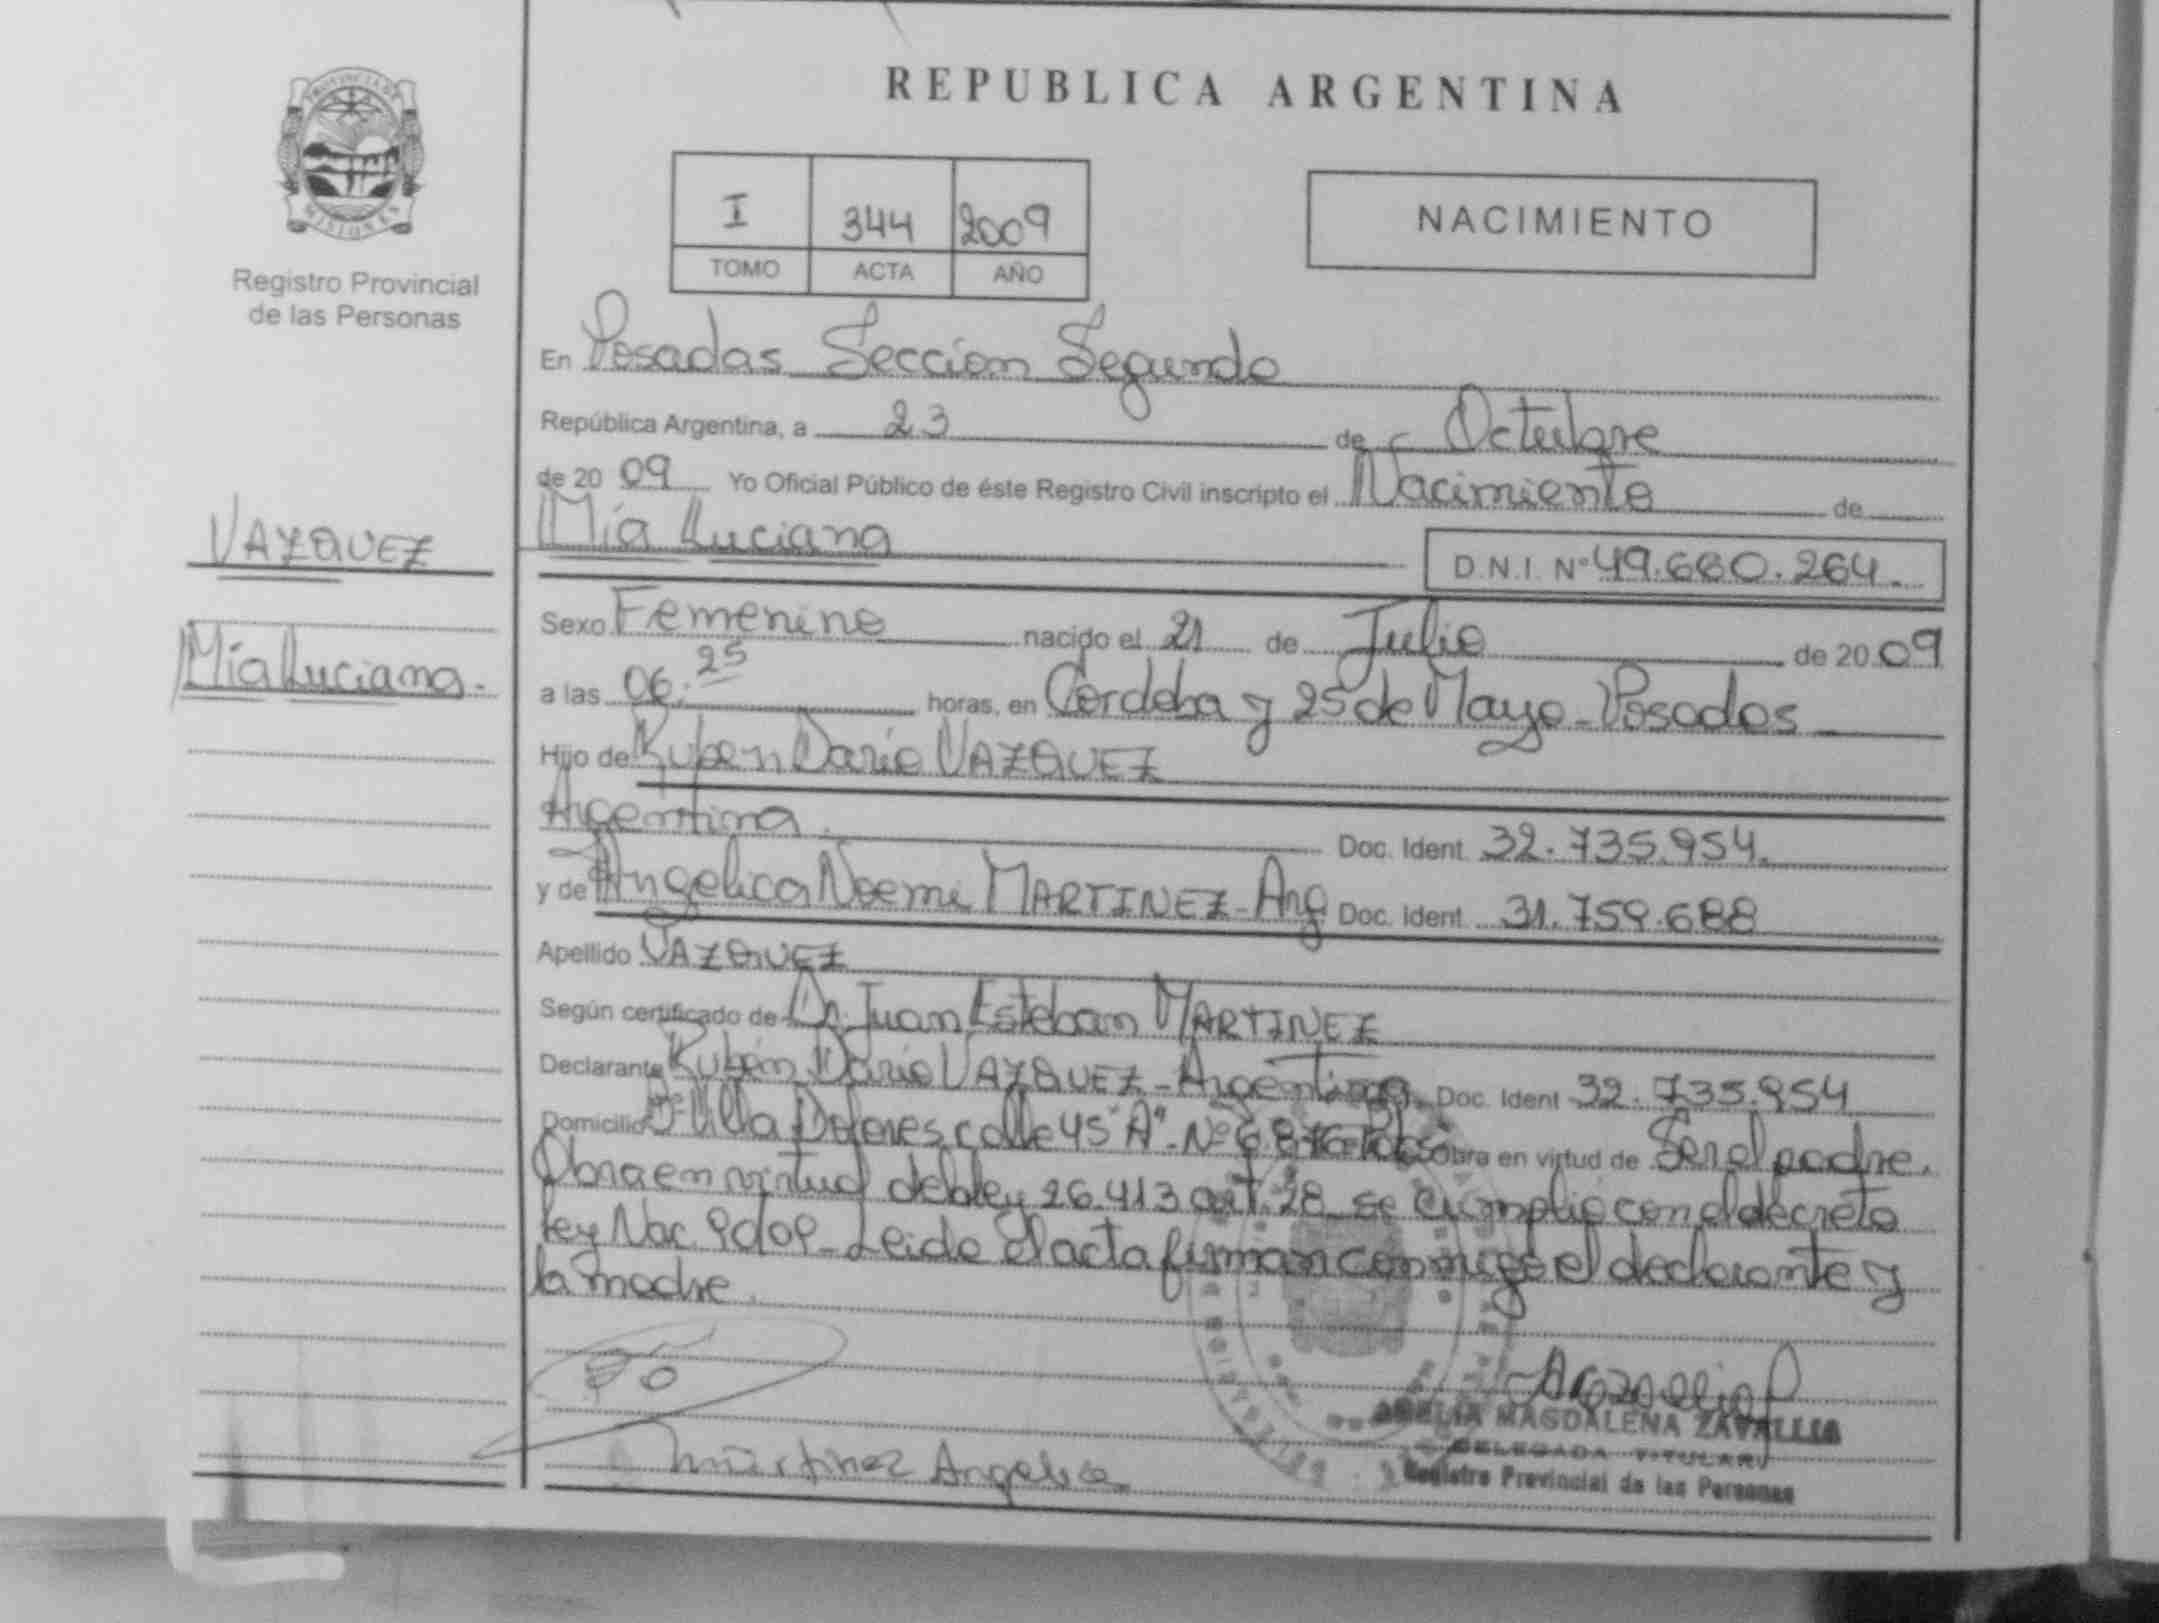 REPUBLICA ARGENTINA
PROVINCIA DE
MISIONES
Registro Provincial
de las Personas
I 344 2009
TOMO ACTA AÑO
NACIMIENTO
En Posadas Sección Segunda
República Argentina, a 23 de Octubre
de 2009 Yo Oficial Público de éste Registro Civil inscripto el Nacimiento de
Mía Luciana
D.N.I. Nº 49.680.264.
VAZQUEZ
Mía Luciana.-
Sexo Femenino nacido el 21 de Julio de 2009
a las 06:25 horas, en Córdoba y 25 de Mayo - Posadas
Hijo de Ruben Dario VAZQUEZ
Argentina. Doc. Ident. 32.735.954.
y de Angelica Noemi MARTINEZ - Arg Doc. Ident. 31.759.688
Apellido VAZQUEZ
Según certificado de Dr. Juan Esteban MARTINEZ
Declarante Rubén Dario VAZQUEZ - Argentino. Doc. Ident 32.735.954
Domicilio Villa calle 45 "A" - Nº Obra en virtud de Ser el padre.
Obra en virtud de la ley 26.413 art. 28 se cumplio con el decreto
ley Nac. Leida el acta firman conmigo el declarante y
la madre.
Martinez Angelica
AMELIA MAGDALENA ZAVALLIA
DELEGADA TITULAR
Registro Provincial de las Personas